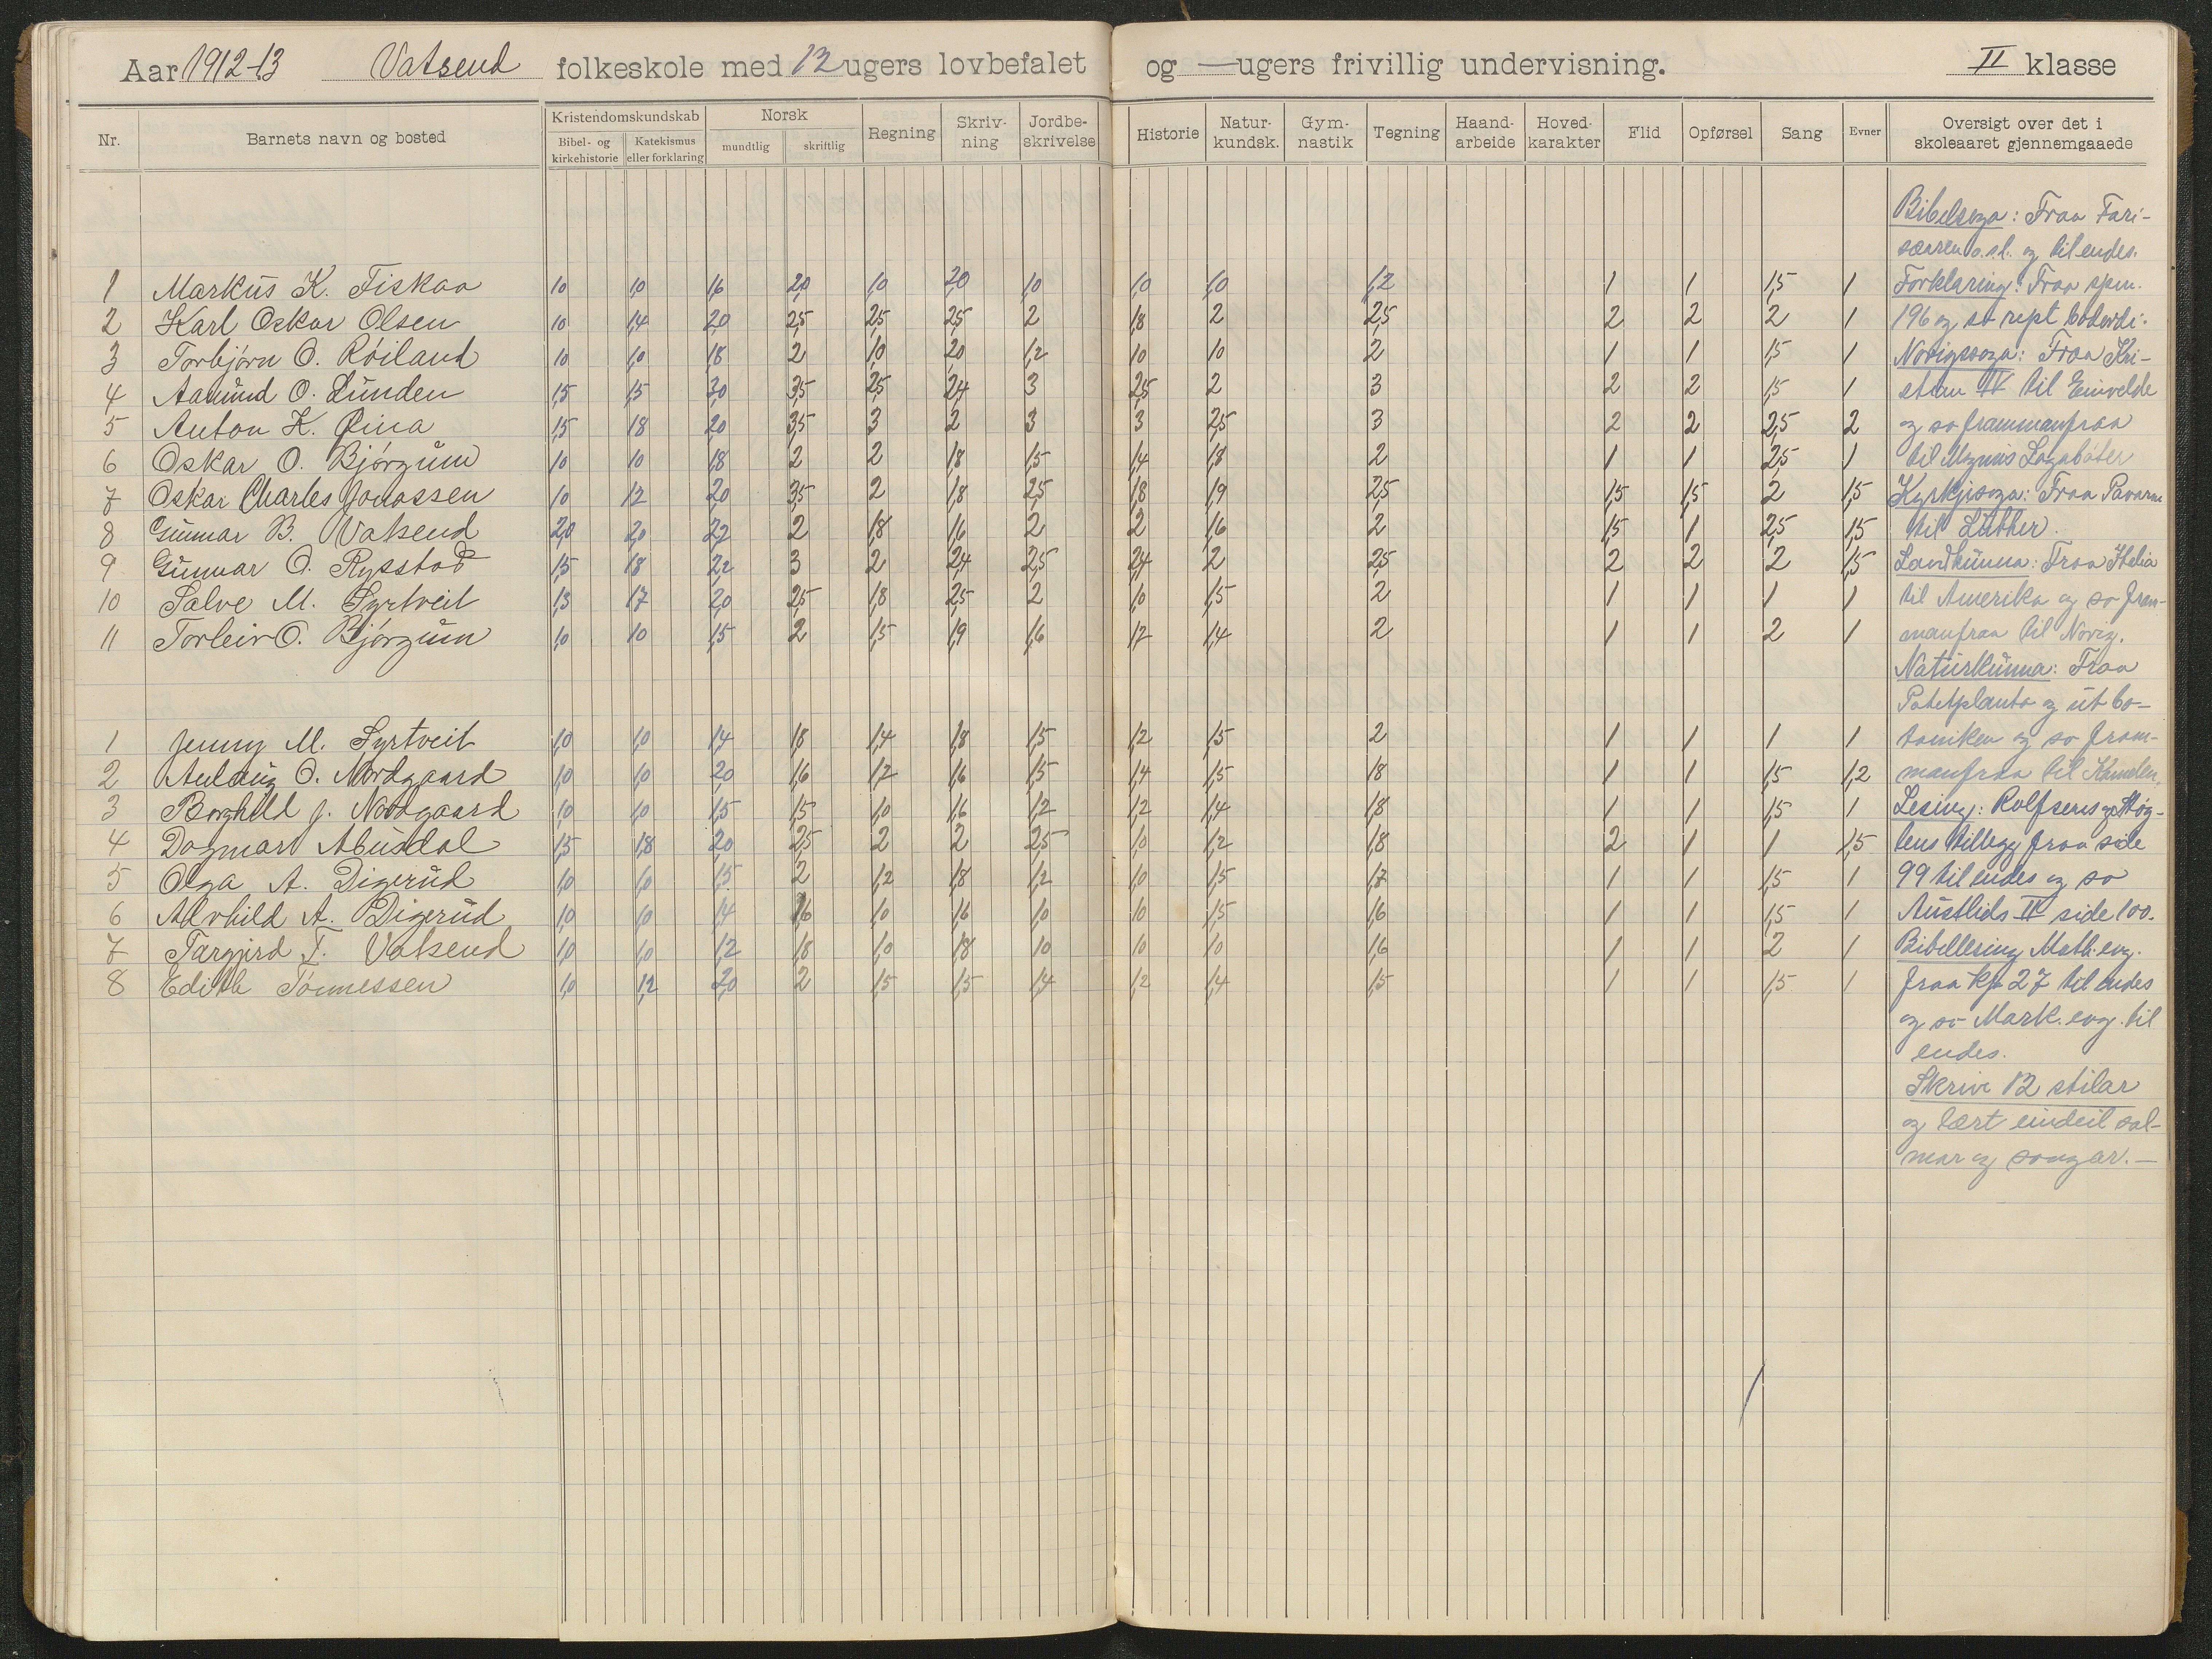 Aar 1912-13 Vatsend folkeskole med 12 ugers lovbefalet og — ugers frivillig undervisning. II klasse
Nr. Barnets navn og bosted Kristendomskundskab Norsk Regning Skriv-ning Jordbe-skrivelse Historie Natur-kundsk. Gym-nastik Tegning Haand-arbeide Hoved-karakter Flid Opførsel Sang Evner Oversigt over det i skoleaaret gjennemgaaede
Bibel- og kirkehistorie Katekismus eller forklaring mundtlig skriftlig
1 Markus K. Fiskaa 1,0 1,0 1,6 2,0 1,0 2,0 1,0 1,0 1,0 1,2 1 1 1,5 1
2 Karl Oskar Olsen 1,0 1,4 2,0 2,5 2,5 2,5 2 1,8 2 2,5 2 2 2 1
3 Torbjørn O. Røiland 1,0 1,0 1,8 2 1,0 2,0 1,2 1,0 1,0 2 1 1 1,5 1
4 Aamund O. Lunden 1,5 1,5 2,0 3,5 2,5 2,4 3 2,5 2 3 2 2 1,5 1
5 Anton K. Øina 1,5 1,8 2,0 3,5 3 2 3 3 2,5 3 2 2 2,5 2
6 Oskar O. Bjørgum 1,0 1,0 1,8 2 2 1,8 1,5 1,4 1,8 2 1 1 2,5 1
7 Oskar Charles Jonassen 1,0 1,2 2,0 3,5 2 1,8 2,5 1,8 1,9 2,5 1,5 1,5 2 1,5
8 Gunnar B. Vatsend 2,0 2,0 2,2 2 1,8 1,6 2 2 1,6 2 1,5 1 2,5 1,5
9 Gunnar O. Rysstad 1,5 1,8 2,2 3 2 2,4 2,5 2,4 2 2,5 2 2 2 1,5
10 Salve M. Syrtveit 1,3 1,7 2,0 2,5 1,8 2,5 2 1,0 1,5 2 1 1 1 1
11 Torleiv O. Bjørgum 1,0 1,0 1,5 2 1,5 1,9 1,6 1,2 1,4 2 1 1 2 1
1 Jenny M. Syrtveit 1,0 1,0 1,4 1,8 1,4 1,8 1,5 1,2 1,5 2 1 1 1 1
2 Aulaug O. Nordgaard 1,0 1,0 2,0 1,6 1,2 1,6 1,5 1,4 1,5 1,8 1 1 1,5 1,2
3 Borghild J. Nordgaard 1,0 1,0 1,5 1,5 1,0 1,6 1,2 1,2 1,4 1,8 1 1 1,5 1
4 Dagmar Abusdal 1,5 1,8 2,0 2,5 2 2 2,5 1,0 1,2 1,8 2 1 1 1,5
5 Olga A. Digerud 1,0 1,0 1,5 2 1,2 1,8 1,2 1,0 1,5 1,7 1 1 1,5 1
6 Alvhild A. Digerud 1,0 1,0 1,4 1,6 1,0 1,6 1,0 1,0 1,5 1,6 1 1 1,5 1
7 Targjerd T. Vatsend 1,0 1,0 1,2 1,8 1,0 1,8 1,0 1,0 1,0 1,6 1 1 2 1
8 Edith Tønnessen 1,0 1,2 2,0 2 1,5 1,5 1,4 1,2 1,4 1,5 1 1 1,5 1
Bibelsoga: Fraa Fari-
sæaren o.s.l. og til endes.
Forklaring: Fraa spm.
196 og so rept boderdi.
Norigssoga: Fraa Kri-
stian IV til Einvelde
og so frammanfraa
til Magnus Lagabøter
Kyrkjesoga: Fraa Pavarne
til Luther.
Landkunna: Fraa Italia
til Amerika og so fram-
manfraa til Norig.
Naturkunna: Fraa
Potetplanta og ut bo-
taniken og so fram-
manfraa til Kamelen.
Lesing: Rolfsens og Høg-
lens tillegg fraa side
99 til endes og so
Austlids II side 100.
Bibellesing Math. evg.
fraa kp 27 til endes
og so Mark. evg. til
endes.
Skrive 12 stilar
og lært eindeil sal-
mar og songar. —